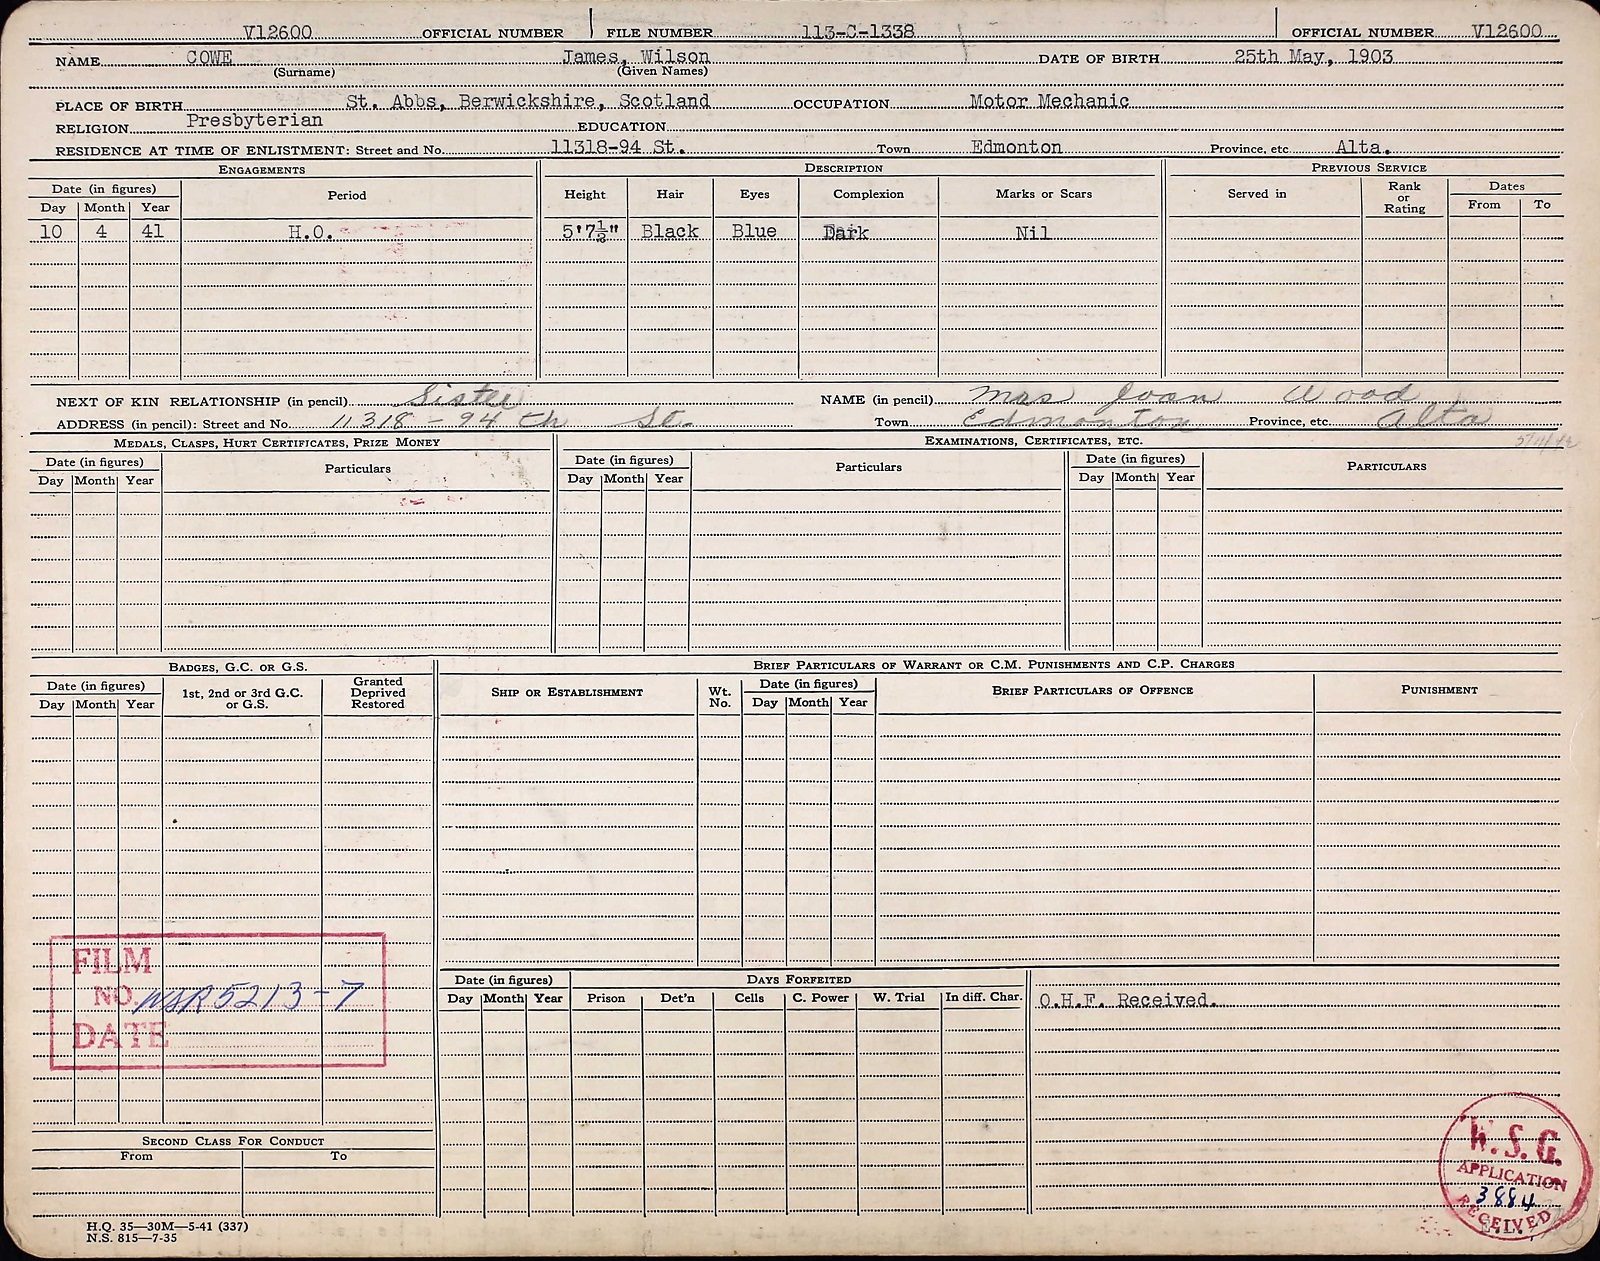 V12600 OFFICIAL NUMBER FILE NUMBER 113-C-1338 OFFICIAL NUMBER V12600
NAME COWE James, Wilson DATE OF BIRTH 25th May, 1903
(Surname) (Given Names)
PLACE OF BIRTH St. Abbs, Berwickshire, Scotland OCCUPATION Motor Mechanic
RELIGION Presbyterian EDUCATION
RESIDENCE AT TIME OF ENLISTMENT: Street and No. 11318-94 St. Town Edmonton Province, etc Alta.
ENGAGEMENTS DESCRIPTION PREVIOUS SERVICE
Date (in figures) Period Height Hair Eyes Complexion Marks or Scars Served in Rank or Rating Dates
Day Month Year From To
10 4 41 H.O. 5'7½" Black Blue Dark Nil
NEXT OF KIN RELATIONSHIP (in pencil) Sister NAME (in pencil) Mrs Joan Wood
ADDRESS (in pencil): Street and No. 11318-94 th St. Town Edmonton Province, etc. Alta
MEDALS, CLASPS, HURT CERTIFICATES, PRIZE MONEY EXAMINATIONS, CERTIFICATES, ETC.
Date (in figures) Particulars Date (in figures) Particulars Date (in figures) PARTICULARS
Day Month Year Day Month Year Day Month Year
BADGES, G.C. OR G.S. BRIEF PARTICULARS OF WARRANT OR C.M. PUNISHMENTS AND C.P. CHARGES
Date (in figures) 1st, 2nd or 3rd G.C. or G.S. Granted Deprived Restored SHIP OR ESTABLISHMENT Wt. No. Date (in figures) BRIEF PARTICULARS OF OFFENCE PUNISHMENT
Day Month Year Day Month Year
FILM
NO. NSR 5213-7
DATE
Date (in figures) DAYS FORFEITED
Day Month Year Prison Det'n Cells C. Power W. Trial In diff. Char.
O.H.F. Received.
SECOND CLASS FOR CONDUCT
From To
W.S.G.
APPLICATION
3884
RECEIVED
H.Q. 35—30M—5-41 (337)
N.S. 815—7-35